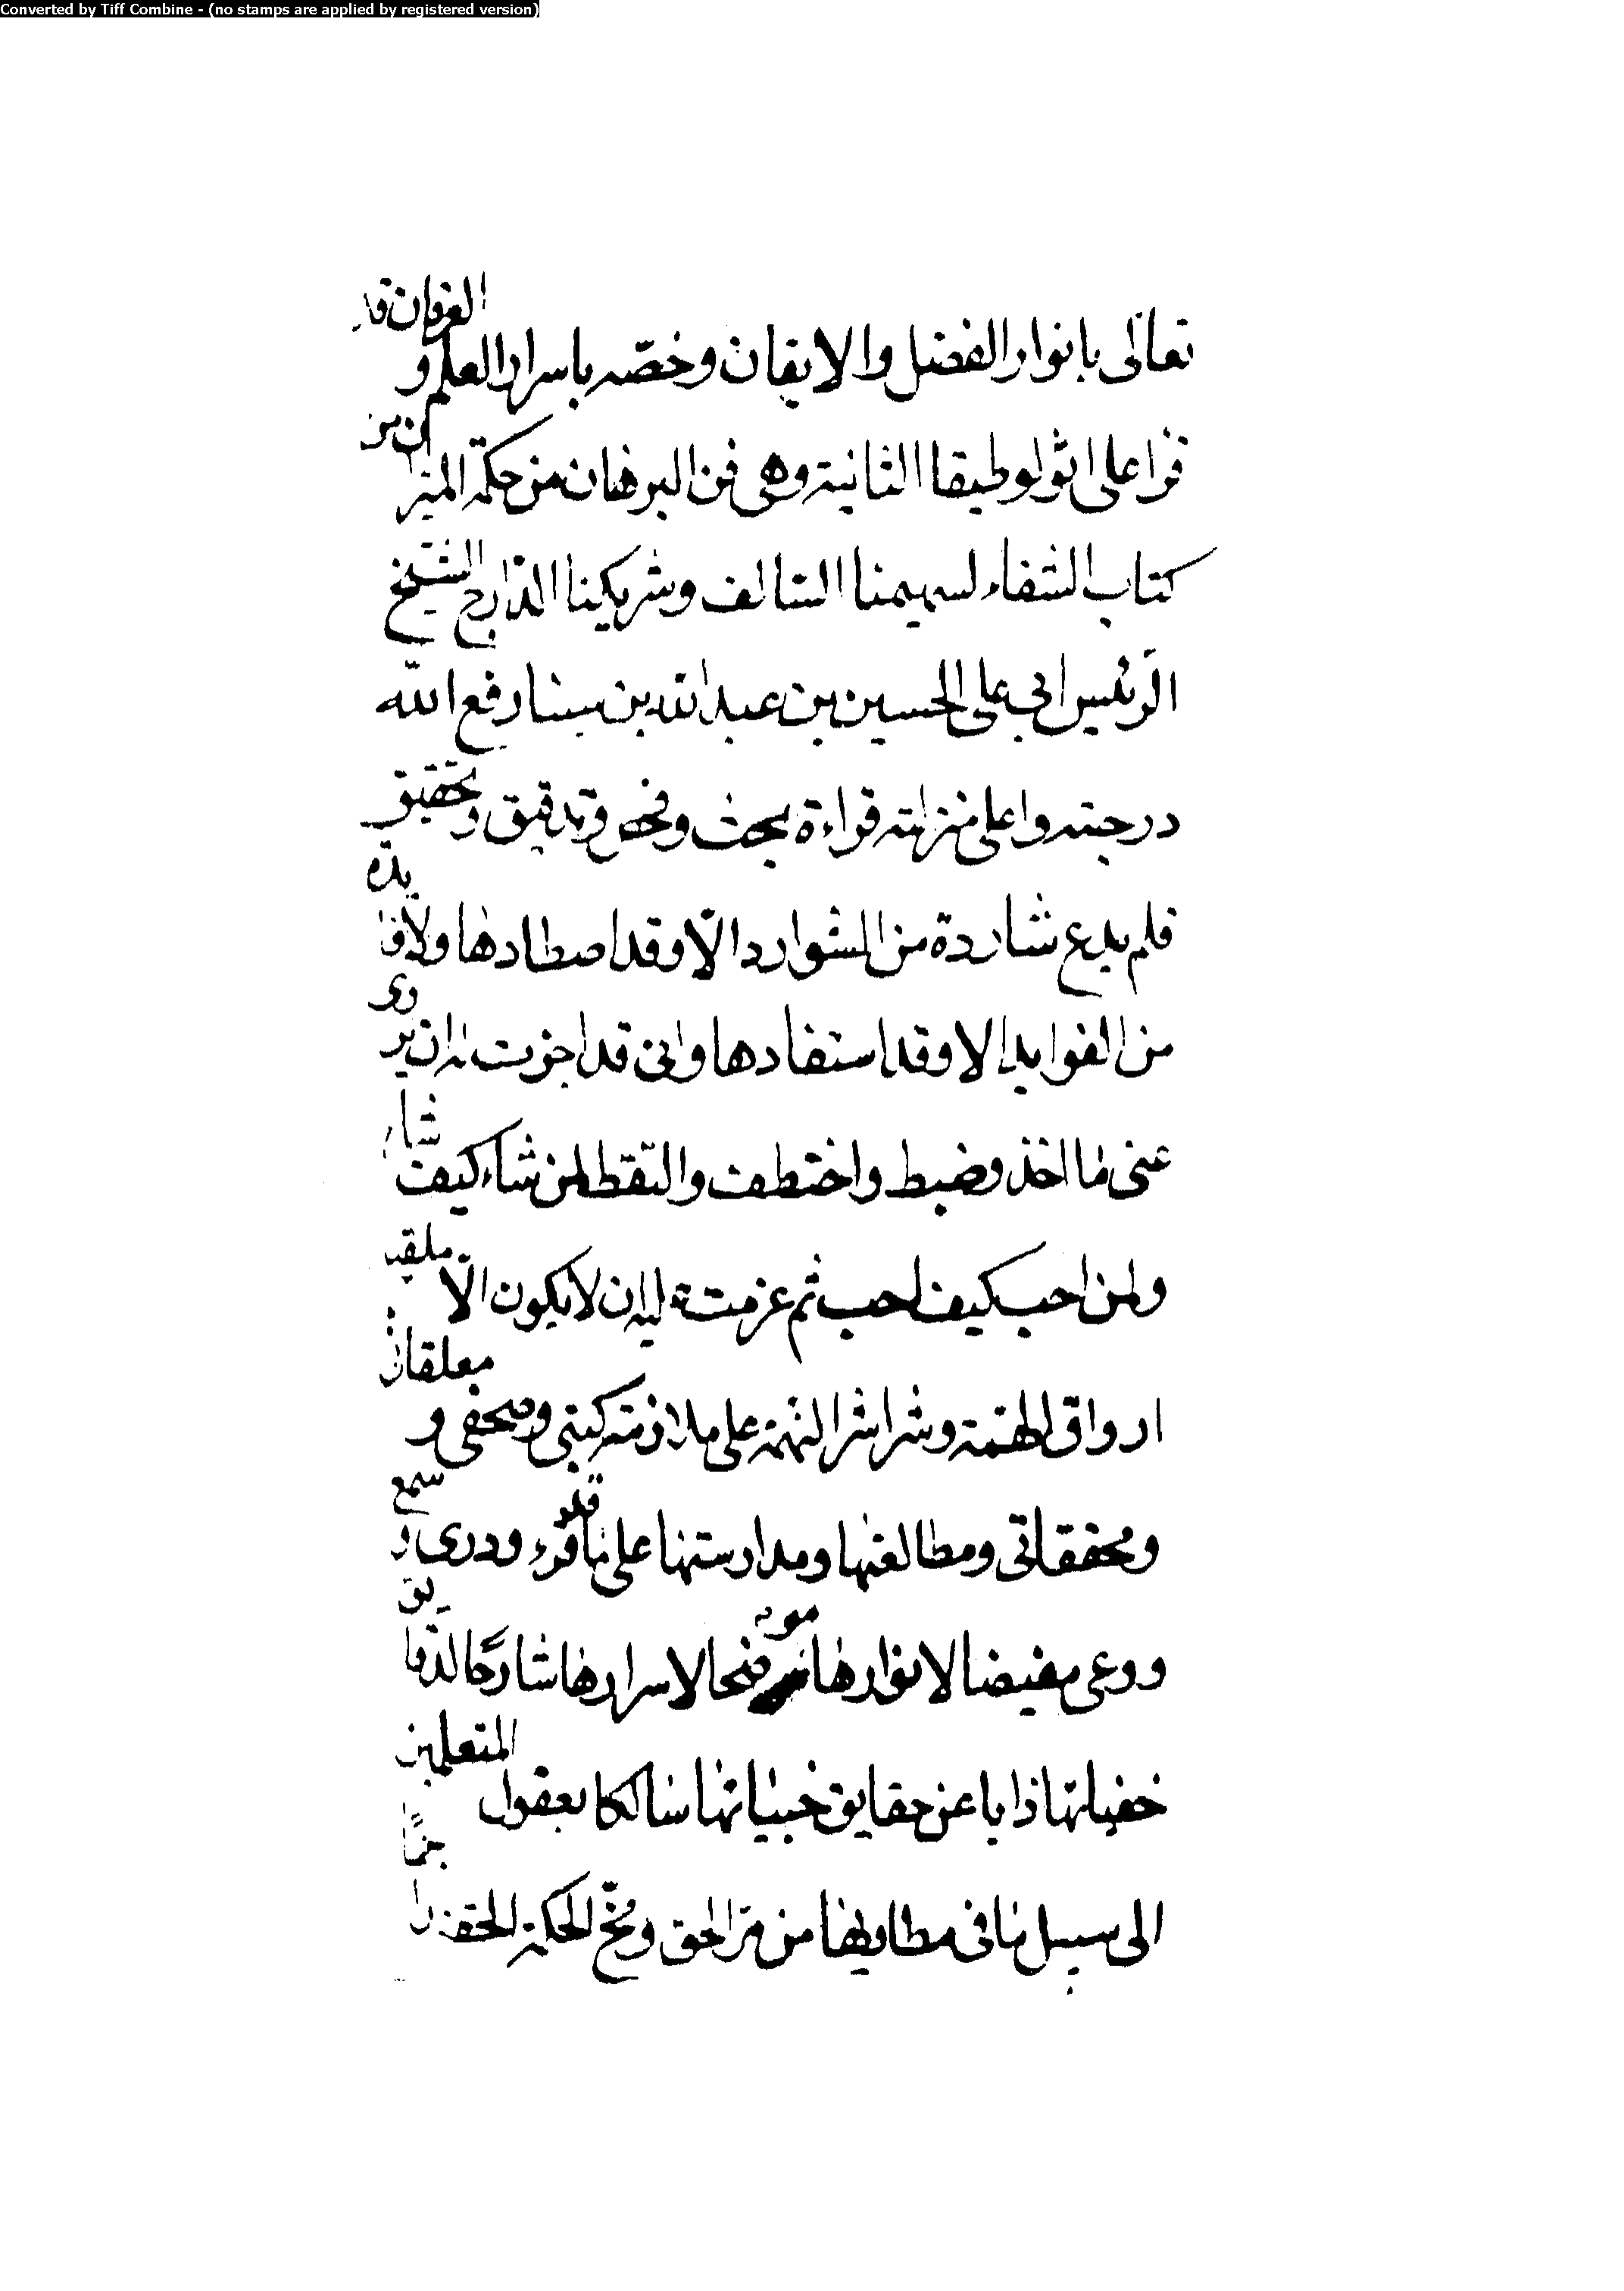 Converted by Tiff Combine - (no stamps are applied by registered version)
تعالى بانوار الفضل والايقان وخصّه باسرار العلم و العرفان قد
قرا على اثولوطيقا الثانية وهى فن البرهان من حكمة الميزان من
كتاب الشفاء لسهيمنا السالف وشريكنا الدارج الشيخ
الرئيس ابى على الحسين بن عبد الله بن سينا رفع الله
درجته واعلى منزلته قراءة بحث وفحص وتدقيق وتحقيق
فلم يدع شاردة من الشوارد الّا وقد اصطادها ولا فايدة
من الفوايد الا وقد استفادها وانى قد اجزت له ان يروى
عنى ما اخذ وضبط واختطف والتقط لمن شاء كيف شاء
ولمن احب كيف احب ثم عزمت عليه ان لا يكون الّا ملقيا
ارواق الهمّة وشراشر النهمة على ملازمة كتبى وصحفى و معلقاتى
ومحققاتى ومطالعتها ومدارستها على ما قد قرء ودرى و سمع
ووعى مفيضا لانوارها موضحا لاسرارها شارحًا لدقايق
خفياتها ذابا عن حقايق خبيئاتها سالكا بعقول المتعلمين
الى سبيل ما فى مطاويها من مرّ الحق ومخّ الحكمة الحقة